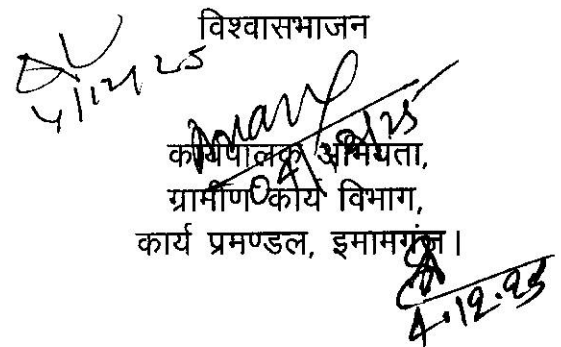 विश्वासभाजन
4/12/25
04/12/25
कार्यपालक अभियंता,
ग्रामीण कार्य विभाग,
कार्य प्रमण्डल, इमामगंज।
4.12.25